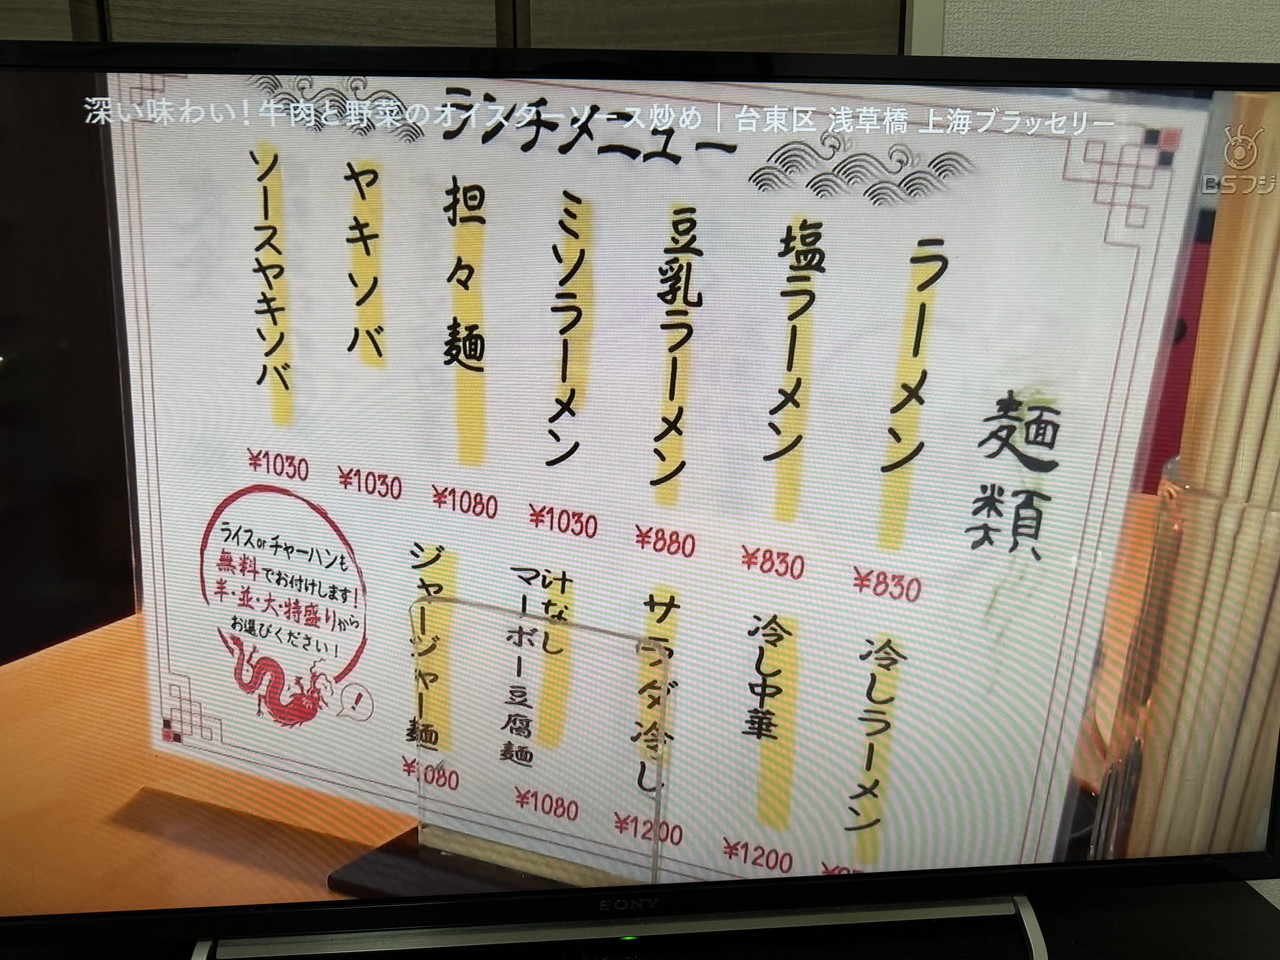 深い味わい！牛肉と野菜のオイスターソース炒め｜台東区 浅草橋 上海ブラッセリー
BSフジ
ランチメニュー
麺類
ラーメン
¥830
塩ラーメン
¥830
豆乳ラーメン
¥880
ミソラーメン
¥1030
担々麺
¥1080
ヤキソバ
¥1030
ソースヤキソバ
¥1030
冷しラーメン
冷し中華
¥1200
サラダ冷し
¥1200
汁なし
マーボー豆腐麺
¥1080
ジャージャー麺
¥1080
ライスorチャーハンも
無料でお付けします！
半・並・大・特盛りから
お選びください！
！
SONY